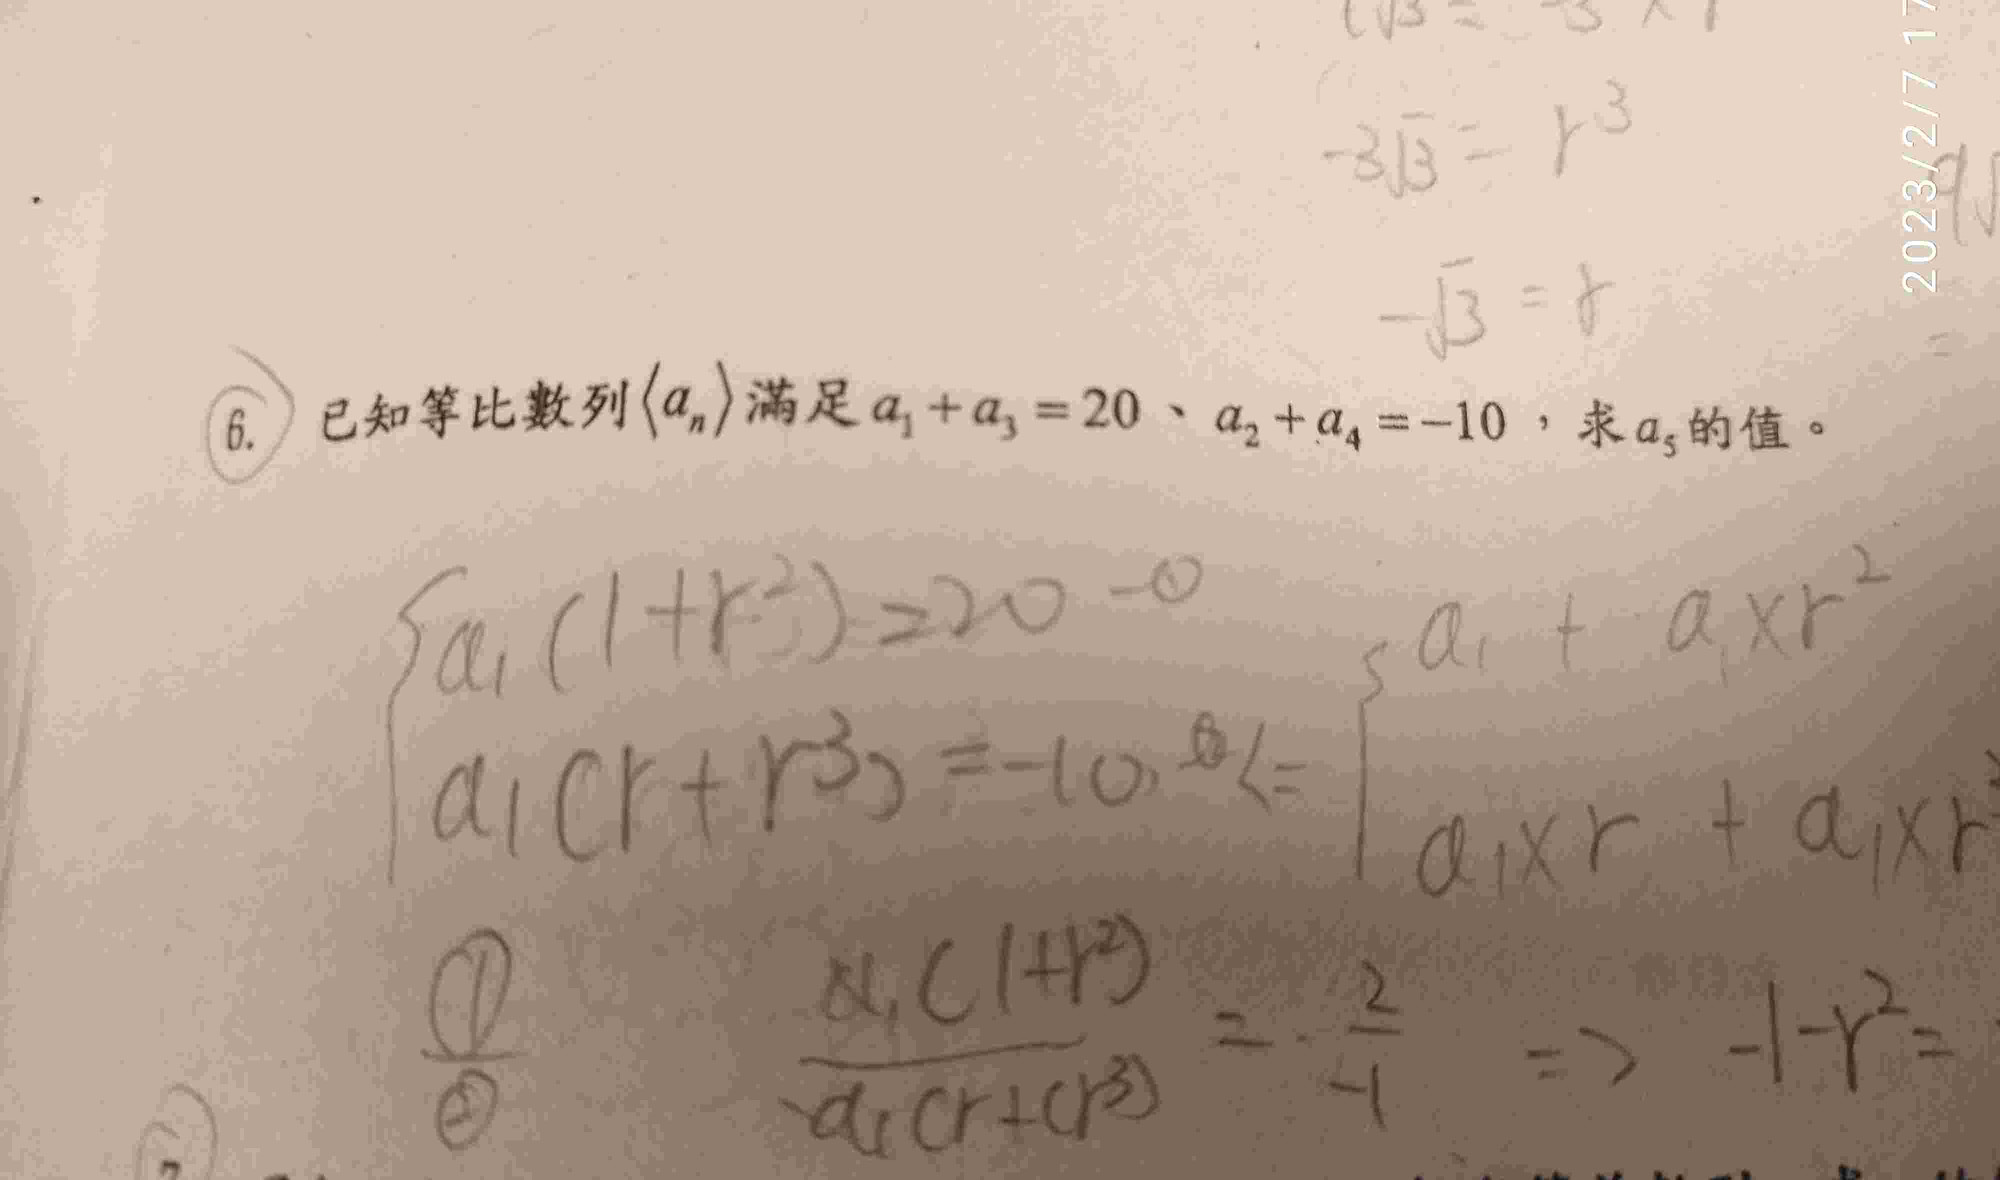 -3√3 = r³
-√3 = r
2023/2/7 17
6. 已知等比數列⟨aₙ⟩滿足 a₁ + a₃ = 20、a₂ + a₄ = -10，求 a₅ 的值。
{ a₁(1+r²) = 20 -① { a₁ + a₁×r²
a₁(r+r³) = -10 -② <= a₁×r + a₁×r
①/② a₁(1+r²)/a₁(r+(r³) = 2/-1 => -1-r² =